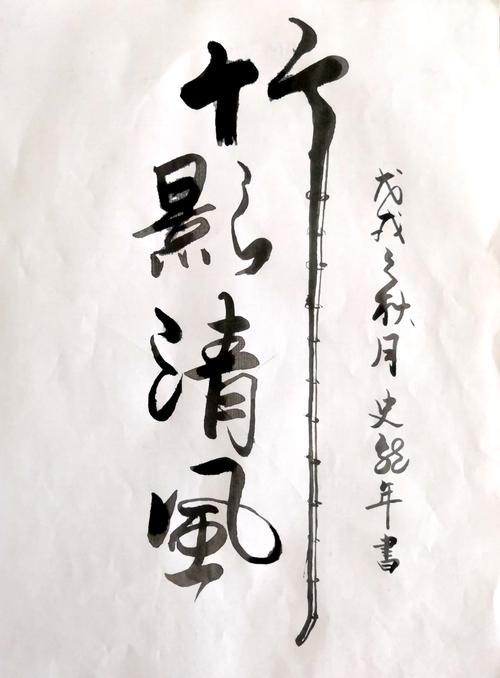 竹影清風
戊戌之秋月 史能年書